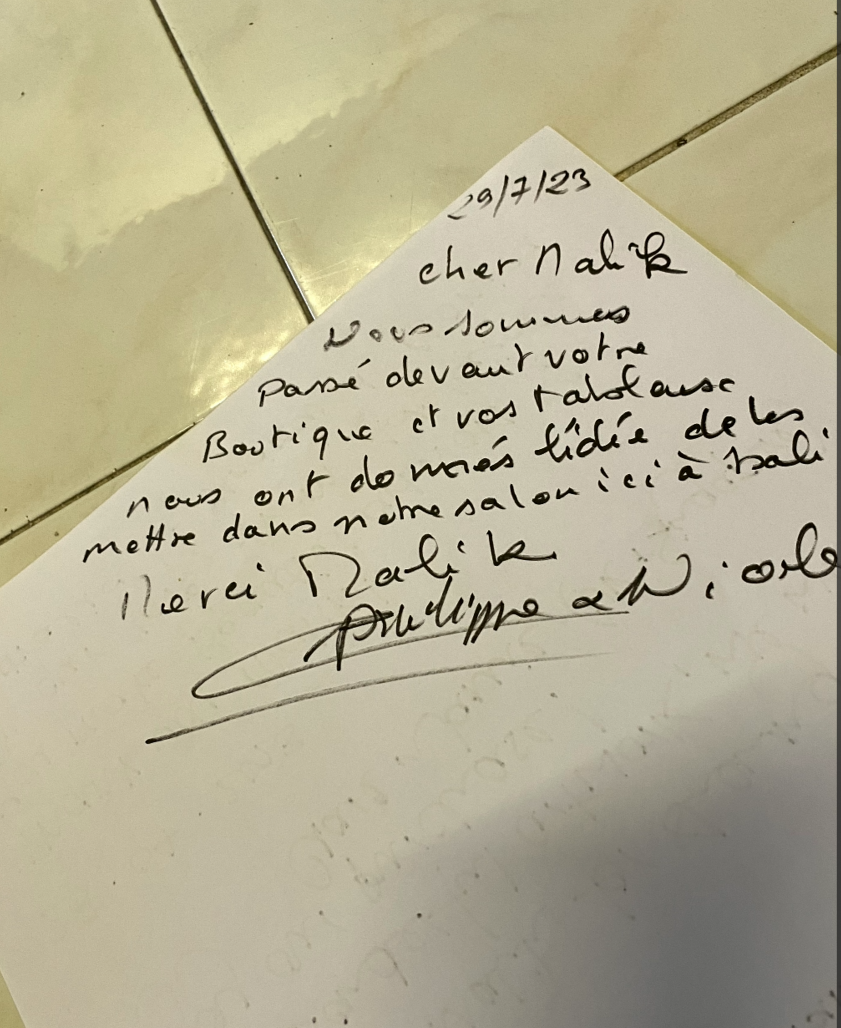 29/7/23
cher Malik
Nous sommes
passé devant votre
Boutique et vos tableause
nous ont donnés lidée de les
mettre dans notre salon ici à bali
Merci Malik
Philippe & Nicole